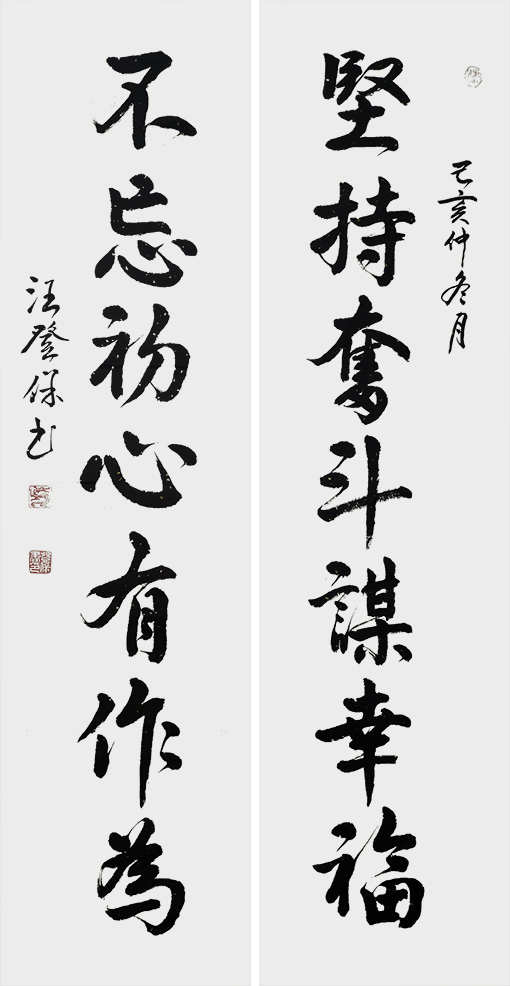 己亥仲冬月
堅持奮斗謀幸福
不忘初心有作為
汪登保书